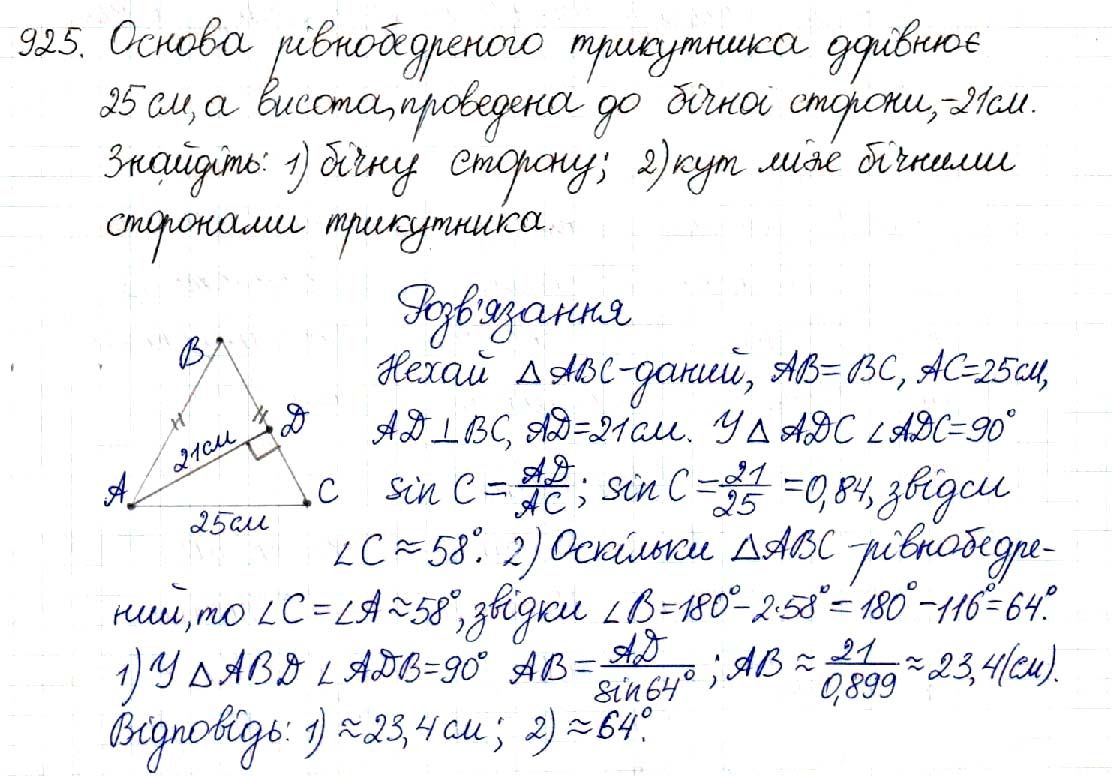 925. Основа рівнобедреного трикутника дорівнює
25 см, а висота, проведена до бічної сторони, – 21 см.
Знайдіть: 1) бічну сторону; 2) кут між бічними
сторонами трикутника.
Розв'язання
B
D
21см
A
C
25см
Нехай △ ABC – даний, AB = BC, AC = 25 см,
AD ⊥ BC, AD = 21 см. У △ ADC ∠ADC = 90°
sin C = AD/AC; sin C = 21/25 = 0,84, звідси
∠C ≈ 58°. 2) Оскільки △ABC – рівнобедре-
ний, то ∠C = ∠A ≈ 58°, звідки ∠B = 180° – 2·58° = 180° – 116° = 64°.
1) У △ ABD ∠ ADB = 90° AB = AD/sin 64°; AB ≈ 21/0,899 ≈ 23,4 (см).
Відповідь: 1) ≈ 23,4 см; 2) ≈ 64°.